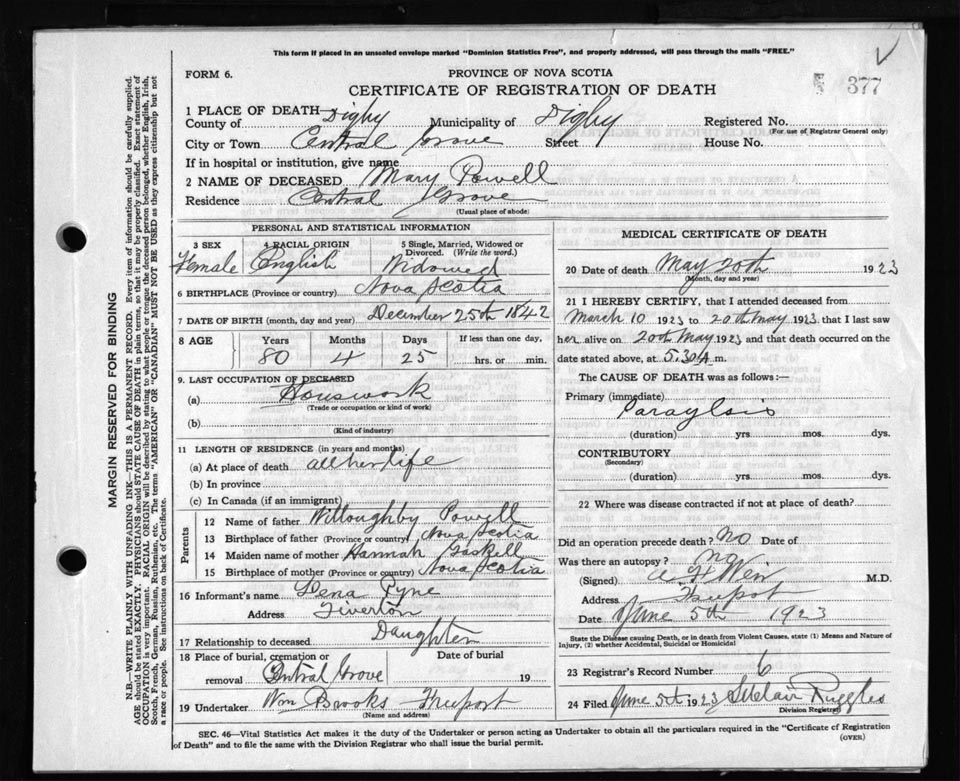 This form if placed in an unsealed envelope marked "Dominion Statistics Free", and properly addressed, will pass through the mails "FREE."
FORM 6.
PROVINCE OF NOVA SCOTIA
377
CERTIFICATE OF REGISTRATION OF DEATH
1 PLACE OF DEATH
County of Digby Municipality of Digby Registered No.
(For use of Registrar General only)
City or Town Central Grove Street House No.
If in hospital or institution, give name
2 NAME OF DECEASED Mary Powell
Residence Central Grove
(Usual place of abode)
PERSONAL AND STATISTICAL INFORMATION
3 SEX 4 RACIAL ORIGIN 5 Single, Married, Widowed or Divorced. (Write the word.)
Female English Widowed
6 BIRTHPLACE (Province or country) Nova Scotia
7 DATE OF BIRTH (month, day and year) December 25th 1842
8 AGE Years Months Days If less than one day,
80 4 25 hrs. or min.
9. LAST OCCUPATION OF DECEASED
(a) Houswork
(Trade or occupation or kind of work)
(b)
(Kind of industry)
11 LENGTH OF RESIDENCE (in years and months)
(a) At place of death all her life
(b) In province
(c) In Canada (if an immigrant)
Parents
12 Name of father Willoughby Powell
13 Birthplace of father (Province or country) Nova Scotia
14 Maiden name of mother Hannah Gaskell
15 Birthplace of mother (Province or country) Nova Scotia
16 Informant's name Lena Pyne
Address Tiverton
17 Relationship to deceased Daughter
18 Place of burial, cremation or removal Central Grove Date of burial 19
19 Undertaker Wm Brooks Freeport
(Name and address)
MEDICAL CERTIFICATE OF DEATH
20 Date of death May 20th 1923
(Month, day and year)
21 I HEREBY CERTIFY, that I attended deceased from
March 10 1923 to 20th May 1923 that I last saw
her alive on 20th May 1923 and that death occurred on the
date stated above, at 5.30 A m.
The CAUSE OF DEATH was as follows:—
Primary (immediate)
Paraylsis
(duration) yrs. mos. dys.
CONTRIBUTORY
(Secondary)
(duration) yrs. mos. dys.
22 Where was disease contracted if not at place of death?
Did an operation precede death? No Date of
Was there an autopsy? no
(Signed) Weir M.D.
Address Freeport
Date June 5th 1923
State the Disease causing Death, or in death from Violent Causes, state (1) Means and Nature of Injury, (2) whether Accidental, Suicidal or Homicidal
23 Registrar's Record Number 6
24 Filed June 5th 1923 Ruggles
Division Registrar
SEC. 46—Vital Statistics Act makes it the duty of the Undertaker or person acting as Undertaker to obtain all the particulars required in the "Certificate of Registration
of Death" and to file the same with the Division Registrar who shall issue the burial permit.
(OVER)
MARGIN RESERVED FOR BINDING
N.B.—WRITE PLAINLY WITH UNFADING INK—THIS IS A PERMANENT RECORD. Every item of information should be carefully supplied.
AGE should be stated EXACTLY. PHYSICIANS should STATE CAUSE OF DEATH in plain terms, so that it may be properly classified. Exact statement of
OCCUPATION is very important. RACIAL ORIGIN will be described by stating to what people or tongue the deceased person belonged, whether English, Irish,
Scotch, French, German, Russian, Ruthenian, etc. The terms "AMERICAN" OR "CANADIAN" MUST NOT BE USED as they express citizenship but not
a race or people. See instructions on back of Certificate.